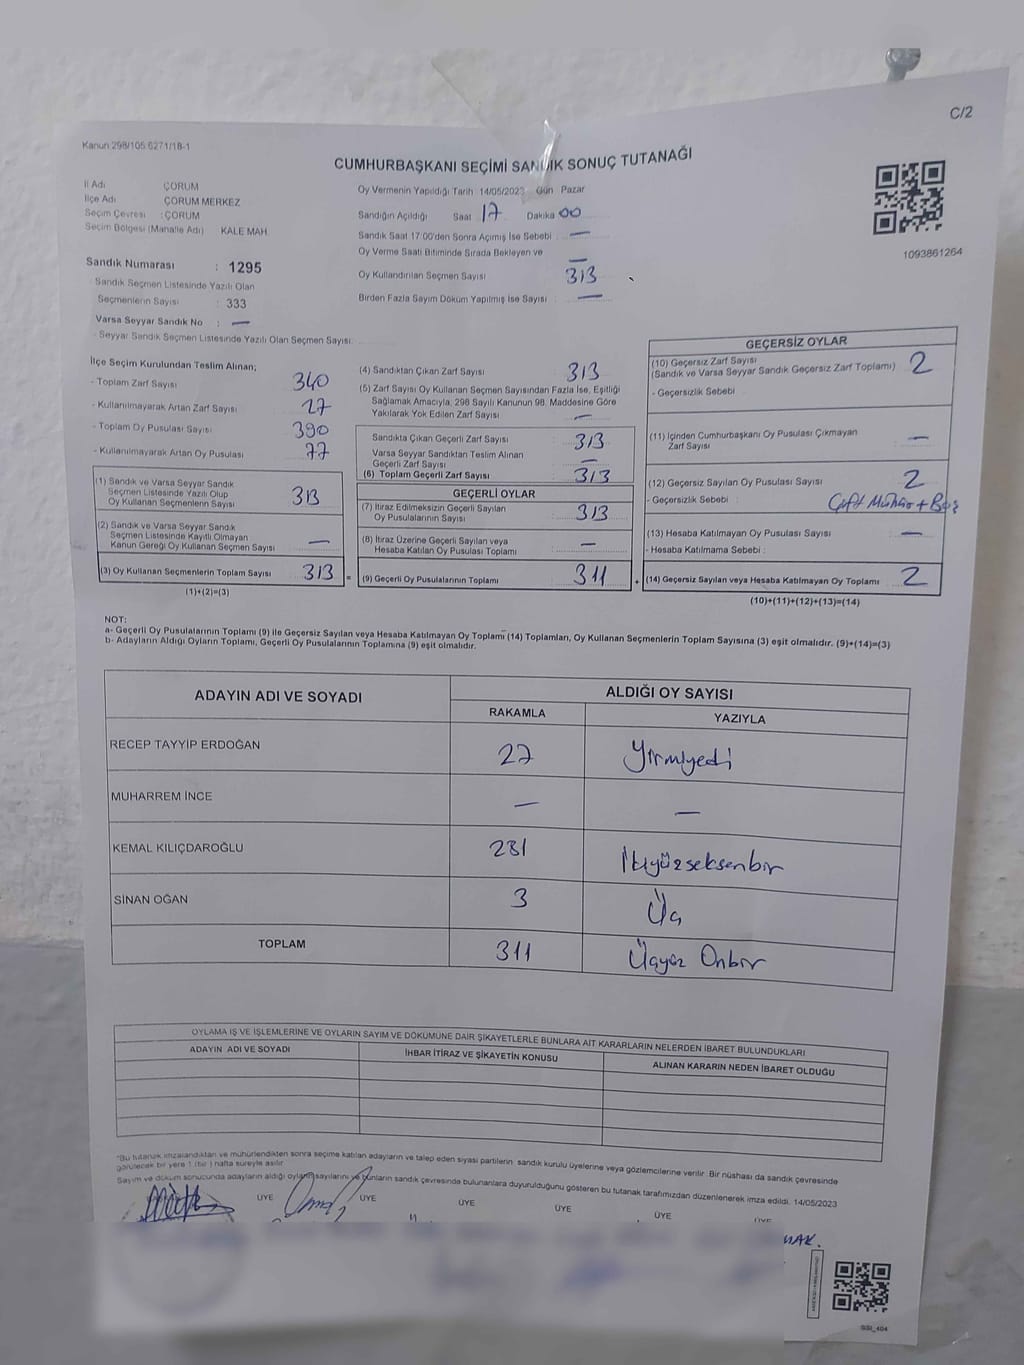 C/2
Kanun 298/105 6271/18-1
CUMHURBAŞKANI SEÇİMİ SANDIK SONUÇ TUTANAĞI
İl Adı ÇORUM
İlçe Adı ÇORUM MERKEZ
Seçim Çevresi : ÇORUM
Seçim Bölgesi (Mahalle Adı) KALE MAH.
Sandık Numarası : 1295
Sandık Seçmen Listesinde Yazılı Olan
Seçmenlerin Sayısı : 333
Varsa Seyyar Sandık No : —
- Seyyar Sandık Seçmen Listesinde Yazılı Olan Seçmen Sayısı:
Oy Vermenin Yapıldığı Tarih 14/05/2023 Gün Pazar
Sandığın Açıldığı Saat 17 Dakika 00
Sandık Saat 17:00'den Sonra Açımış İse Sebebi : —
Oy Verme Saati Bitiminde Sırada Bekleyen ve —
Oy Kullandırılan Seçmen Sayısı 313
Birden Fazla Sayım Döküm Yapılmış İse Sayısı : —
1093861264
İlçe Seçim Kurulundan Teslim Alınan;
- Toplam Zarf Sayısı 340
- Kullanılmayarak Artan Zarf Sayısı 27
- Toplam Oy Pusulası Sayısı 390
- Kullanılmayarak Artan Oy Pusulası 77
(1) Sandık ve Varsa Seyyar Sandık
Seçmen Listesinde Yazılı Olup
Oy Kullanan Seçmenlerin Sayısı 313
(2) Sandık ve Varsa Seyyar Sandık
Seçmen Listesinde Kayıtlı Olmayan
Kanun Gereği Oy Kullanan Seçmen Sayısı —
(3) Oy Kullanan Seçmenlerin Toplam Sayısı 313 =
(1)+(2)=(3)
(4) Sandıktan Çıkan Zarf Sayısı 313
(5) Zarf Sayısı Oy Kullanan Seçmen Sayısından Fazla İse, Eşitliği
Sağlamak Amacıyla, 298 Sayılı Kanunun 98. Maddesine Göre
Yakılarak Yok Edilen Zarf Sayısı —
Sandıkta Çıkan Geçerli Zarf Sayısı 313
Varsa Seyyar Sandıktan Teslim Alınan
Geçerli Zarf Sayısı —
(6) Toplam Geçerli Zarf Sayısı 313
GEÇERLİ OYLAR
(7) İtiraz Edilmeksizin Geçerli Sayılan
Oy Pusulalarının Sayısı 313
(8) İtiraz Üzerine Geçerli Sayılan veya
Hesaba Katılan Oy Pusulası Toplamı —
(9) Geçerli Oy Pusulalarının Toplamı 311 +
GEÇERSİZ OYLAR
(10) Geçersiz Zarf Sayısı
(Sandık ve Varsa Seyyar Sandık Geçersiz Zarf Toplamı) 2
- Geçersizlik Sebebi
(11) İçinden Cumhurbaşkanı Oy Pusulası Çıkmayan
Zarf Sayısı —
(12) Geçersiz Sayılan Oy Pusulası Sayısı 2
- Geçersizlik Sebebi : Çift Mühür + Boş
(13) Hesaba Katılmayan Oy Pusulası Sayısı —
- Hesaba Katılmama Sebebi :
(14) Geçersiz Sayılan veya Hesaba Katılmayan Oy Toplamı 2
(10)+(11)+(12)+(13)=(14)
NOT:
a- Geçerli Oy Pusulalarının Toplamı (9) ile Geçersiz Sayılan veya Hesaba Katılmayan Oy Toplamı (14) Toplamları, Oy Kullanan Seçmenlerin Toplam Sayısına (3) eşit olmalıdır. (9)+(14)=(3)
b- Adayların Aldığı Oyların Toplamı, Geçerli Oy Pusulalarının Toplamına (9) eşit olmalıdır.
ADAYIN ADI VE SOYADI ALDIĞI OY SAYISI
RAKAMLA YAZIYLA
RECEP TAYYİP ERDOĞAN 27 Yirmiyedi
MUHARREM İNCE — —
KEMAL KILIÇDAROĞLU 281 İkiyüzseksenbir
SİNAN OĞAN 3 Üç
TOPLAM 311 Üçyüz Onbir
OYLAMA İŞ VE İŞLEMLERİNE VE OYLARIN SAYIM VE DÖKÜMÜNE DAİR ŞİKAYETLERLE BUNLARA AİT KARARLARIN NELERDEN İBARET BULUNDUKLARI
ADAYIN ADI VE SOYADI İHBAR İTİRAZ VE ŞİKAYETİN KONUSU ALINAN KARARIN NEDEN İBARET OLDUĞU
*Bu tutanak imzalandıktan ve mühürlendikten sonra seçime katılan adayların ve talep eden siyasi partilerin sandık kurulu üyelerine veya gözlemcilerine verilir. Bir nüshası da sandık çevresinde
görülecek bir yere 1 (bir) hafta süreyle asılır
Sayım ve döküm sonucunda adayların aldığı oyların sayılarını ve bunların sandık çevresinde bulunanlara duyurulduğunu gösteren bu tutanak tarafımızdan düzenlenerek imza edildi. 14/05/2023
ÜYE ÜYE ÜYE ÜYE ÜYE ÜYE